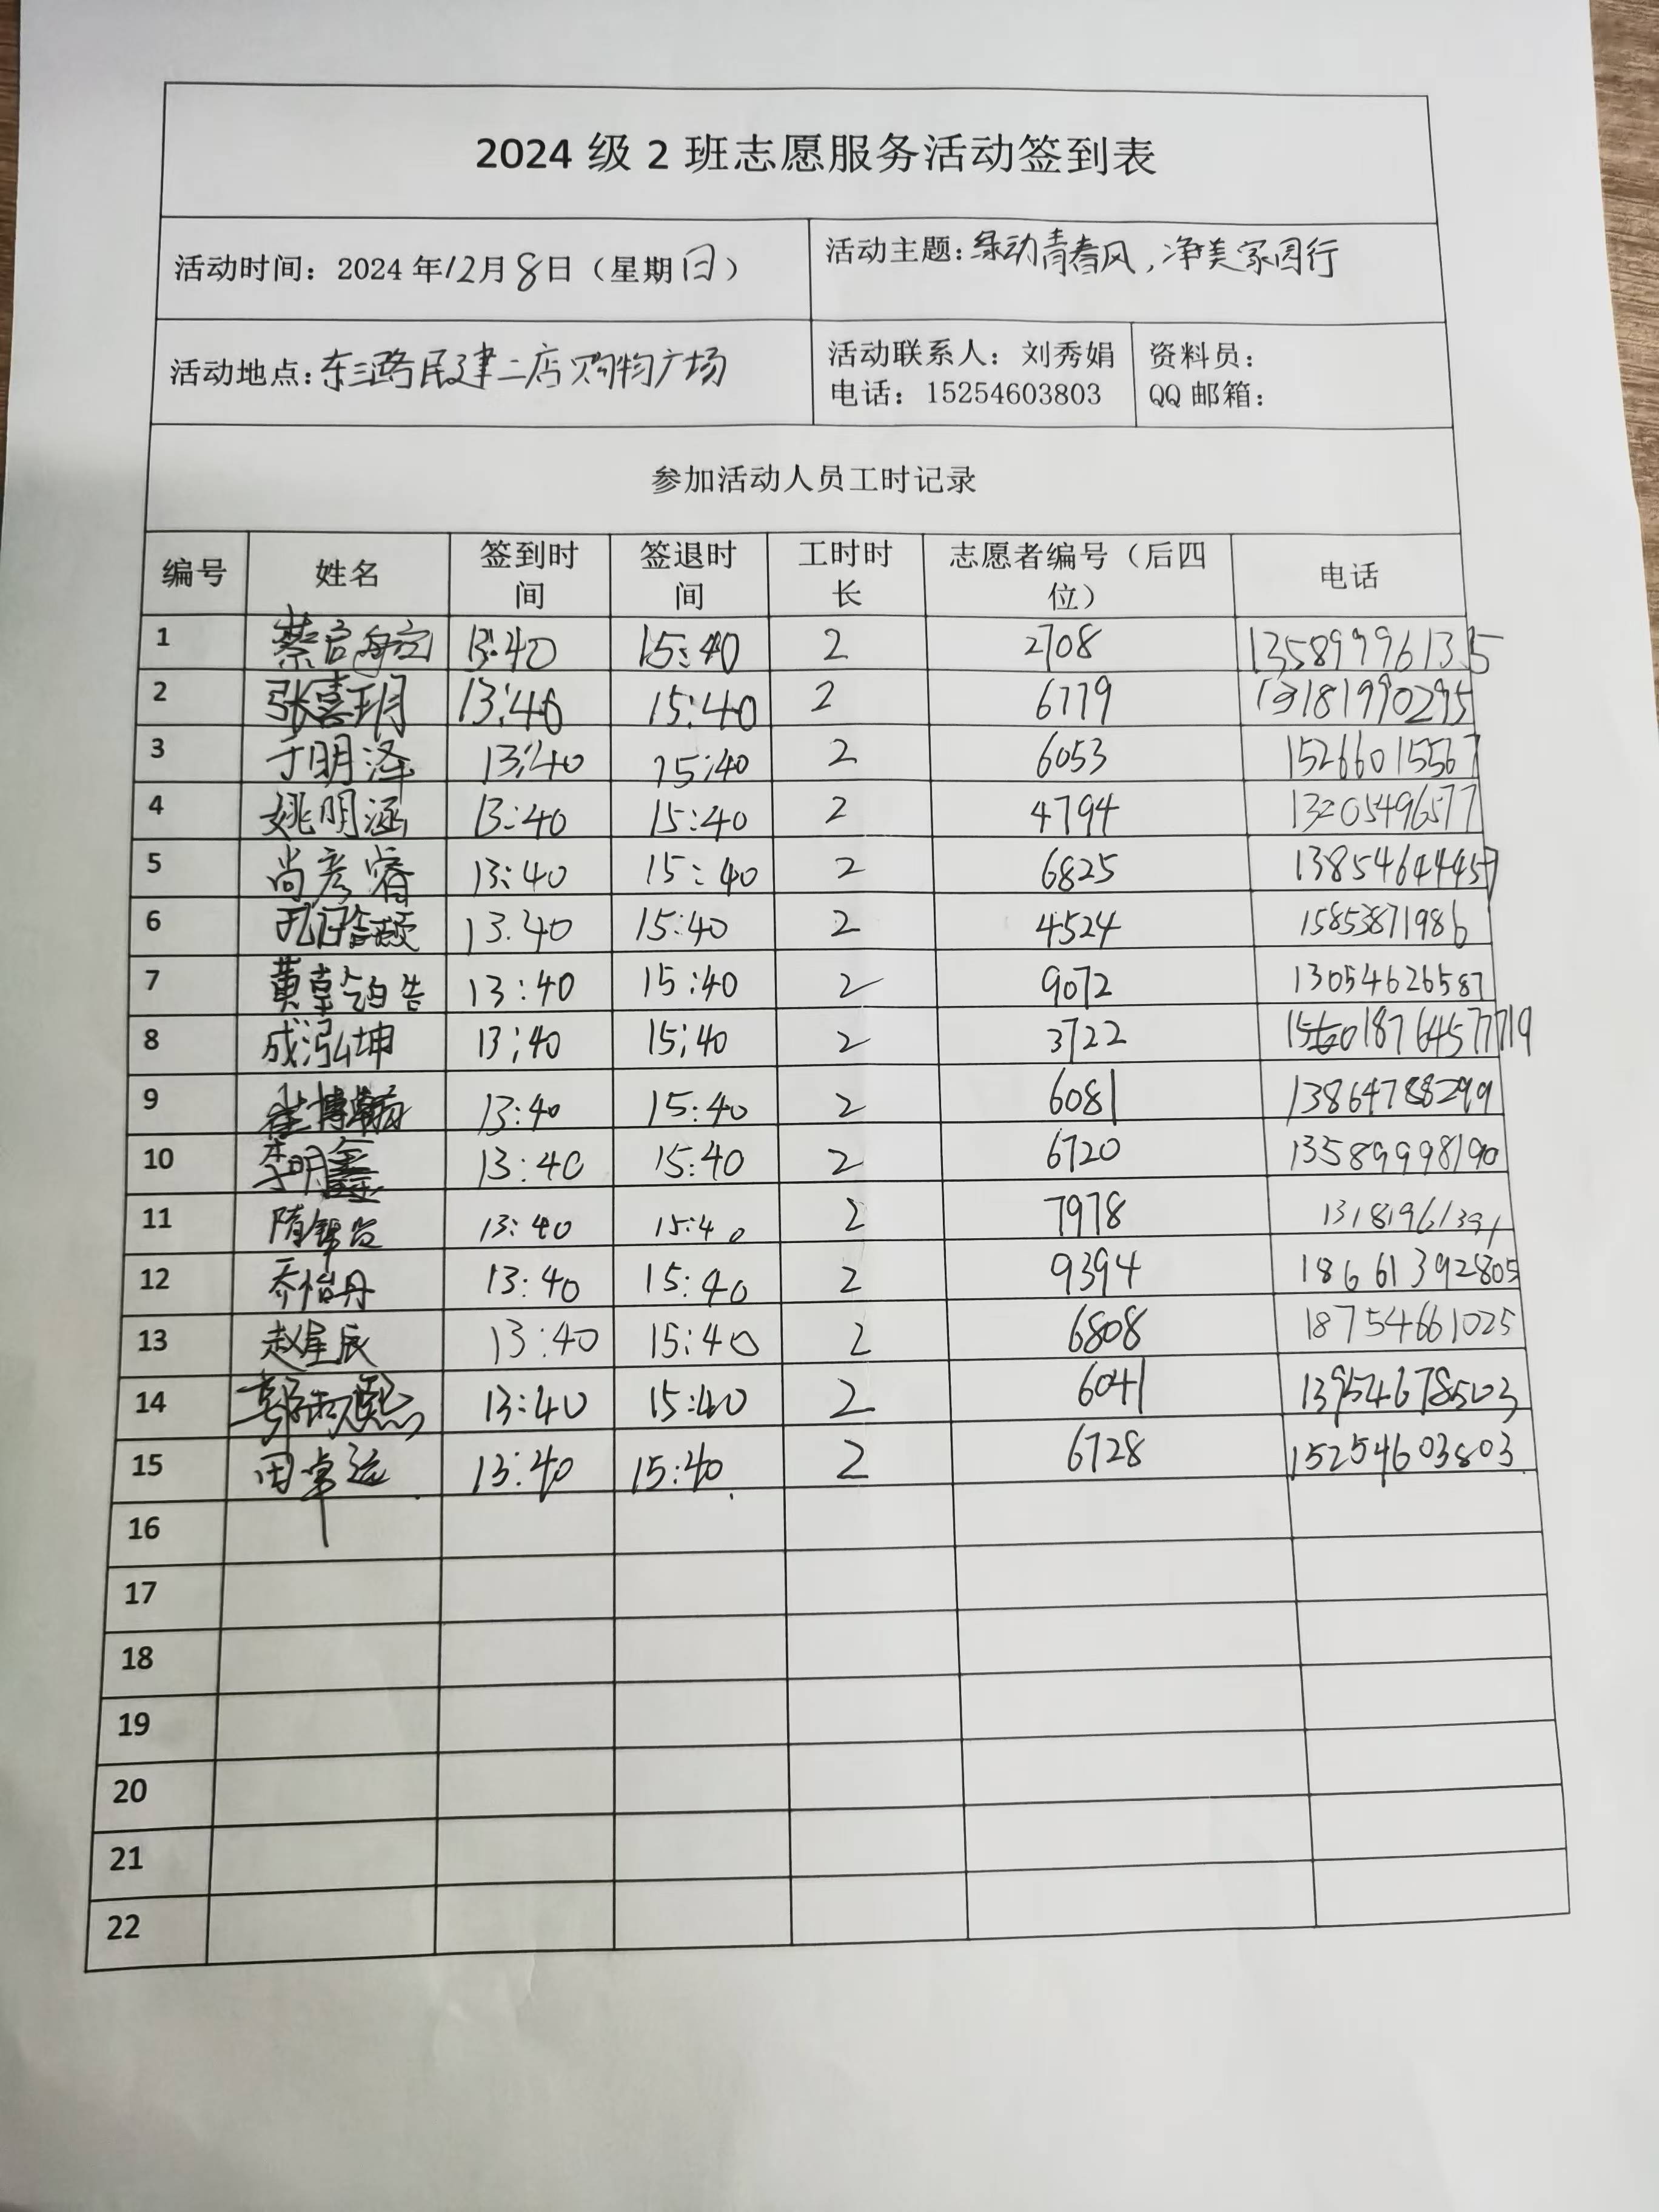 2024 级 2 班志愿服务活动签到表
活动时间：2024 年 12 月 8 日（星期 日） 活动主题：绿动青春风，净美家园行
活动地点：东三路民建二店购物广场 活动联系人：刘秀娟 资料员：
电话：15254603803 QQ 邮箱：
参加活动人员工时记录
编号 姓名 签到时间 签退时间 工时时长 志愿者编号（后四位） 电话
1 蔡启航 13:40 15:40 2 2708
2 张喜玥 13:40 15:40 2 6779
3 于明泽 13:40 15:40 2 6053 15266015567
4 姚明涵 13:40 15:40 2 4794 13205496577
5 尚彦睿 13:40 15:40 2 6825
6 13.40 15:40 2 4524 15853871986
7 13:40 15:40 2 9072 13054626587
8 成泓坤 13:40 15:40 2 3722
9 崔博翰 13:40 15:40 2 6081 13864788299
10 李明鑫 13:40 15:40 2 6720 13589998190
11 13:40 15:40 2 7978 13181961391
12 乔怡丹 13:40 15:40 2 9394 18661392805
13 赵星辰 13:40 15:40 2 6808 18754661025
14 13:40 15:40 2 6041 13954678503
15 田卓运 13:40 15:40 2 6728 15254603803
16
17
18
19
20
21
22